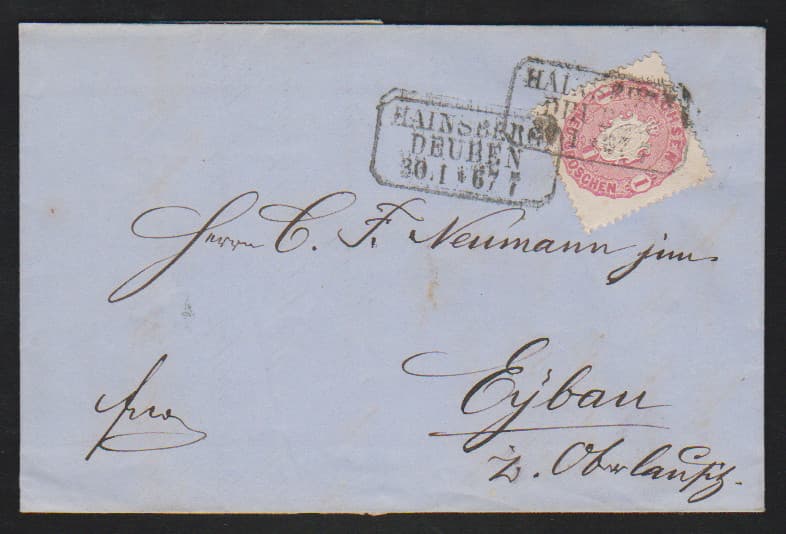 HAINSBERG
DEUBEN
30.1 67 7
HAI
DEU
SACHSEN
GROSCHEN
1
1
Herrn C. F. Neumann jun.
Eÿbau
z. Oberlausitz.
frco